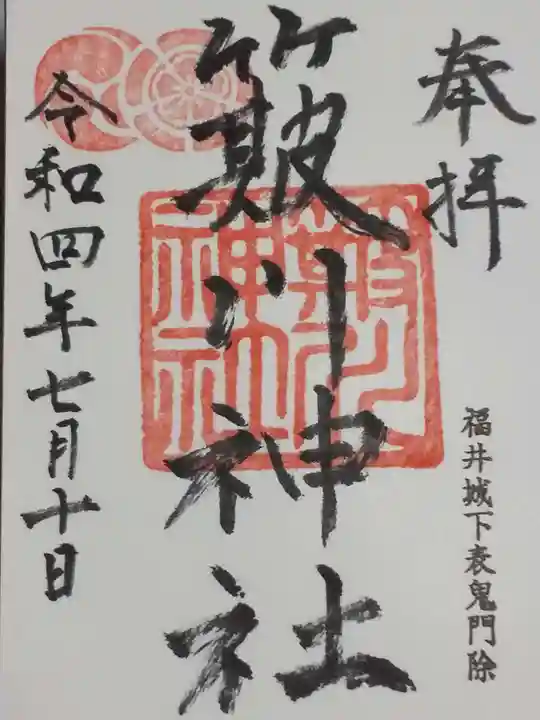 奉拝
福井城下表鬼門除
簸川神社
簸川神社
令和四年七月十日